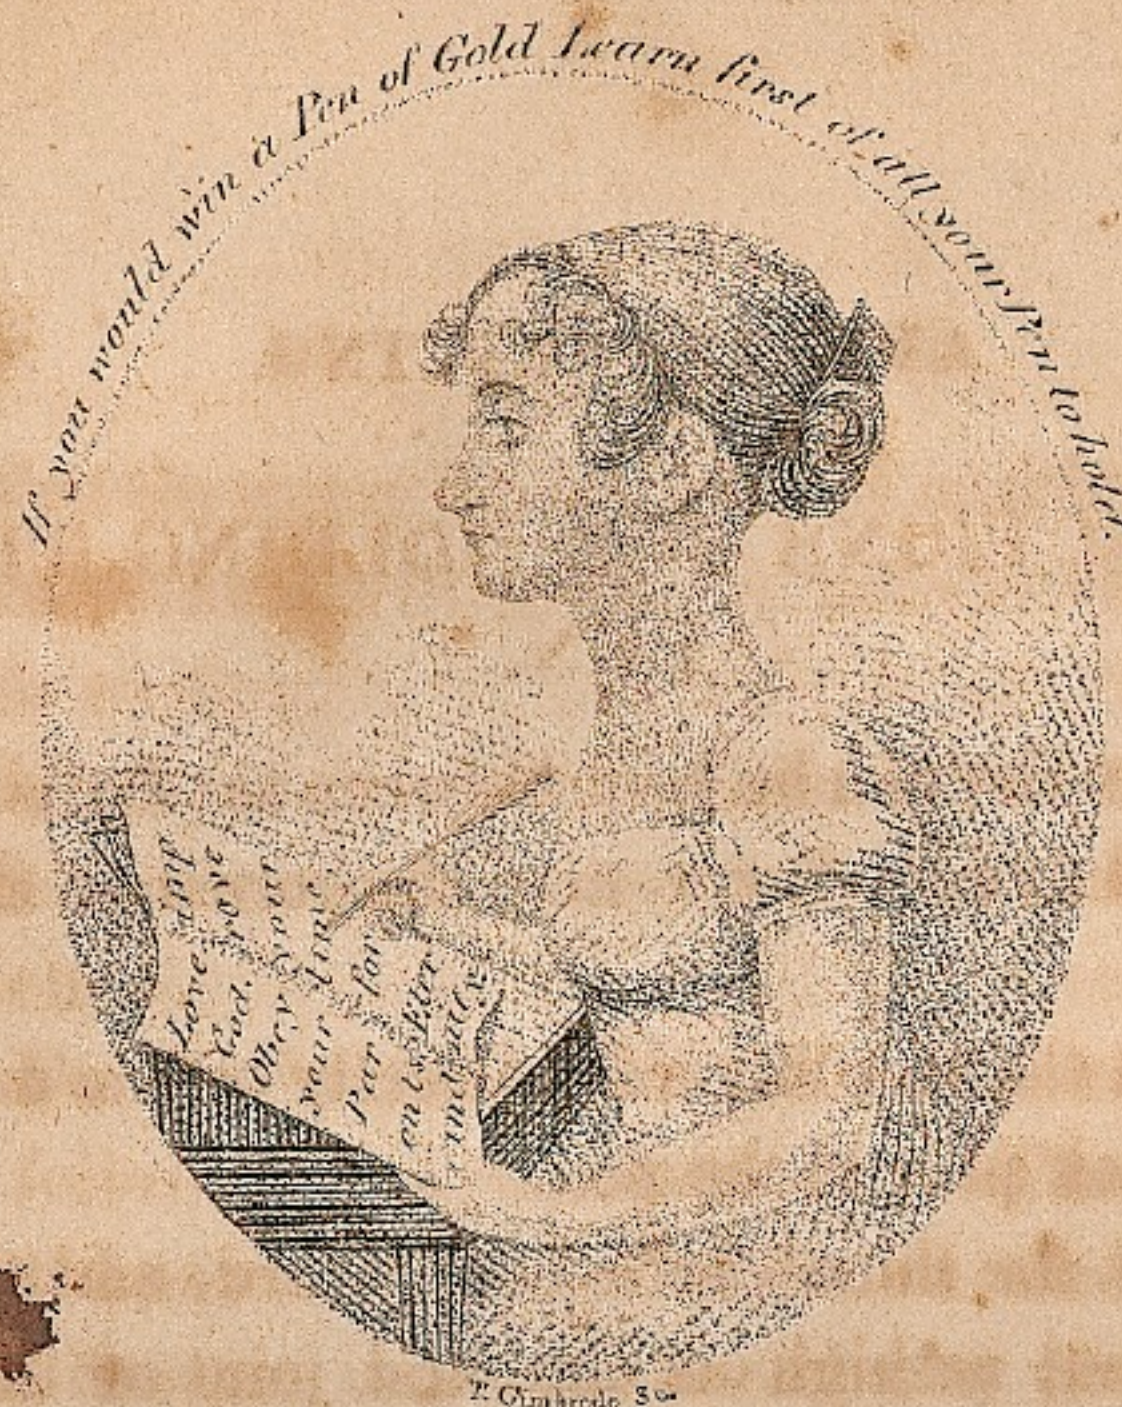 If you would win a Pen of Gold Learn first of all your Pen to hold.
Love thy
God. gove
Obey your
your time
Par for
ents Eter
and
T. Gimbrede Sc.